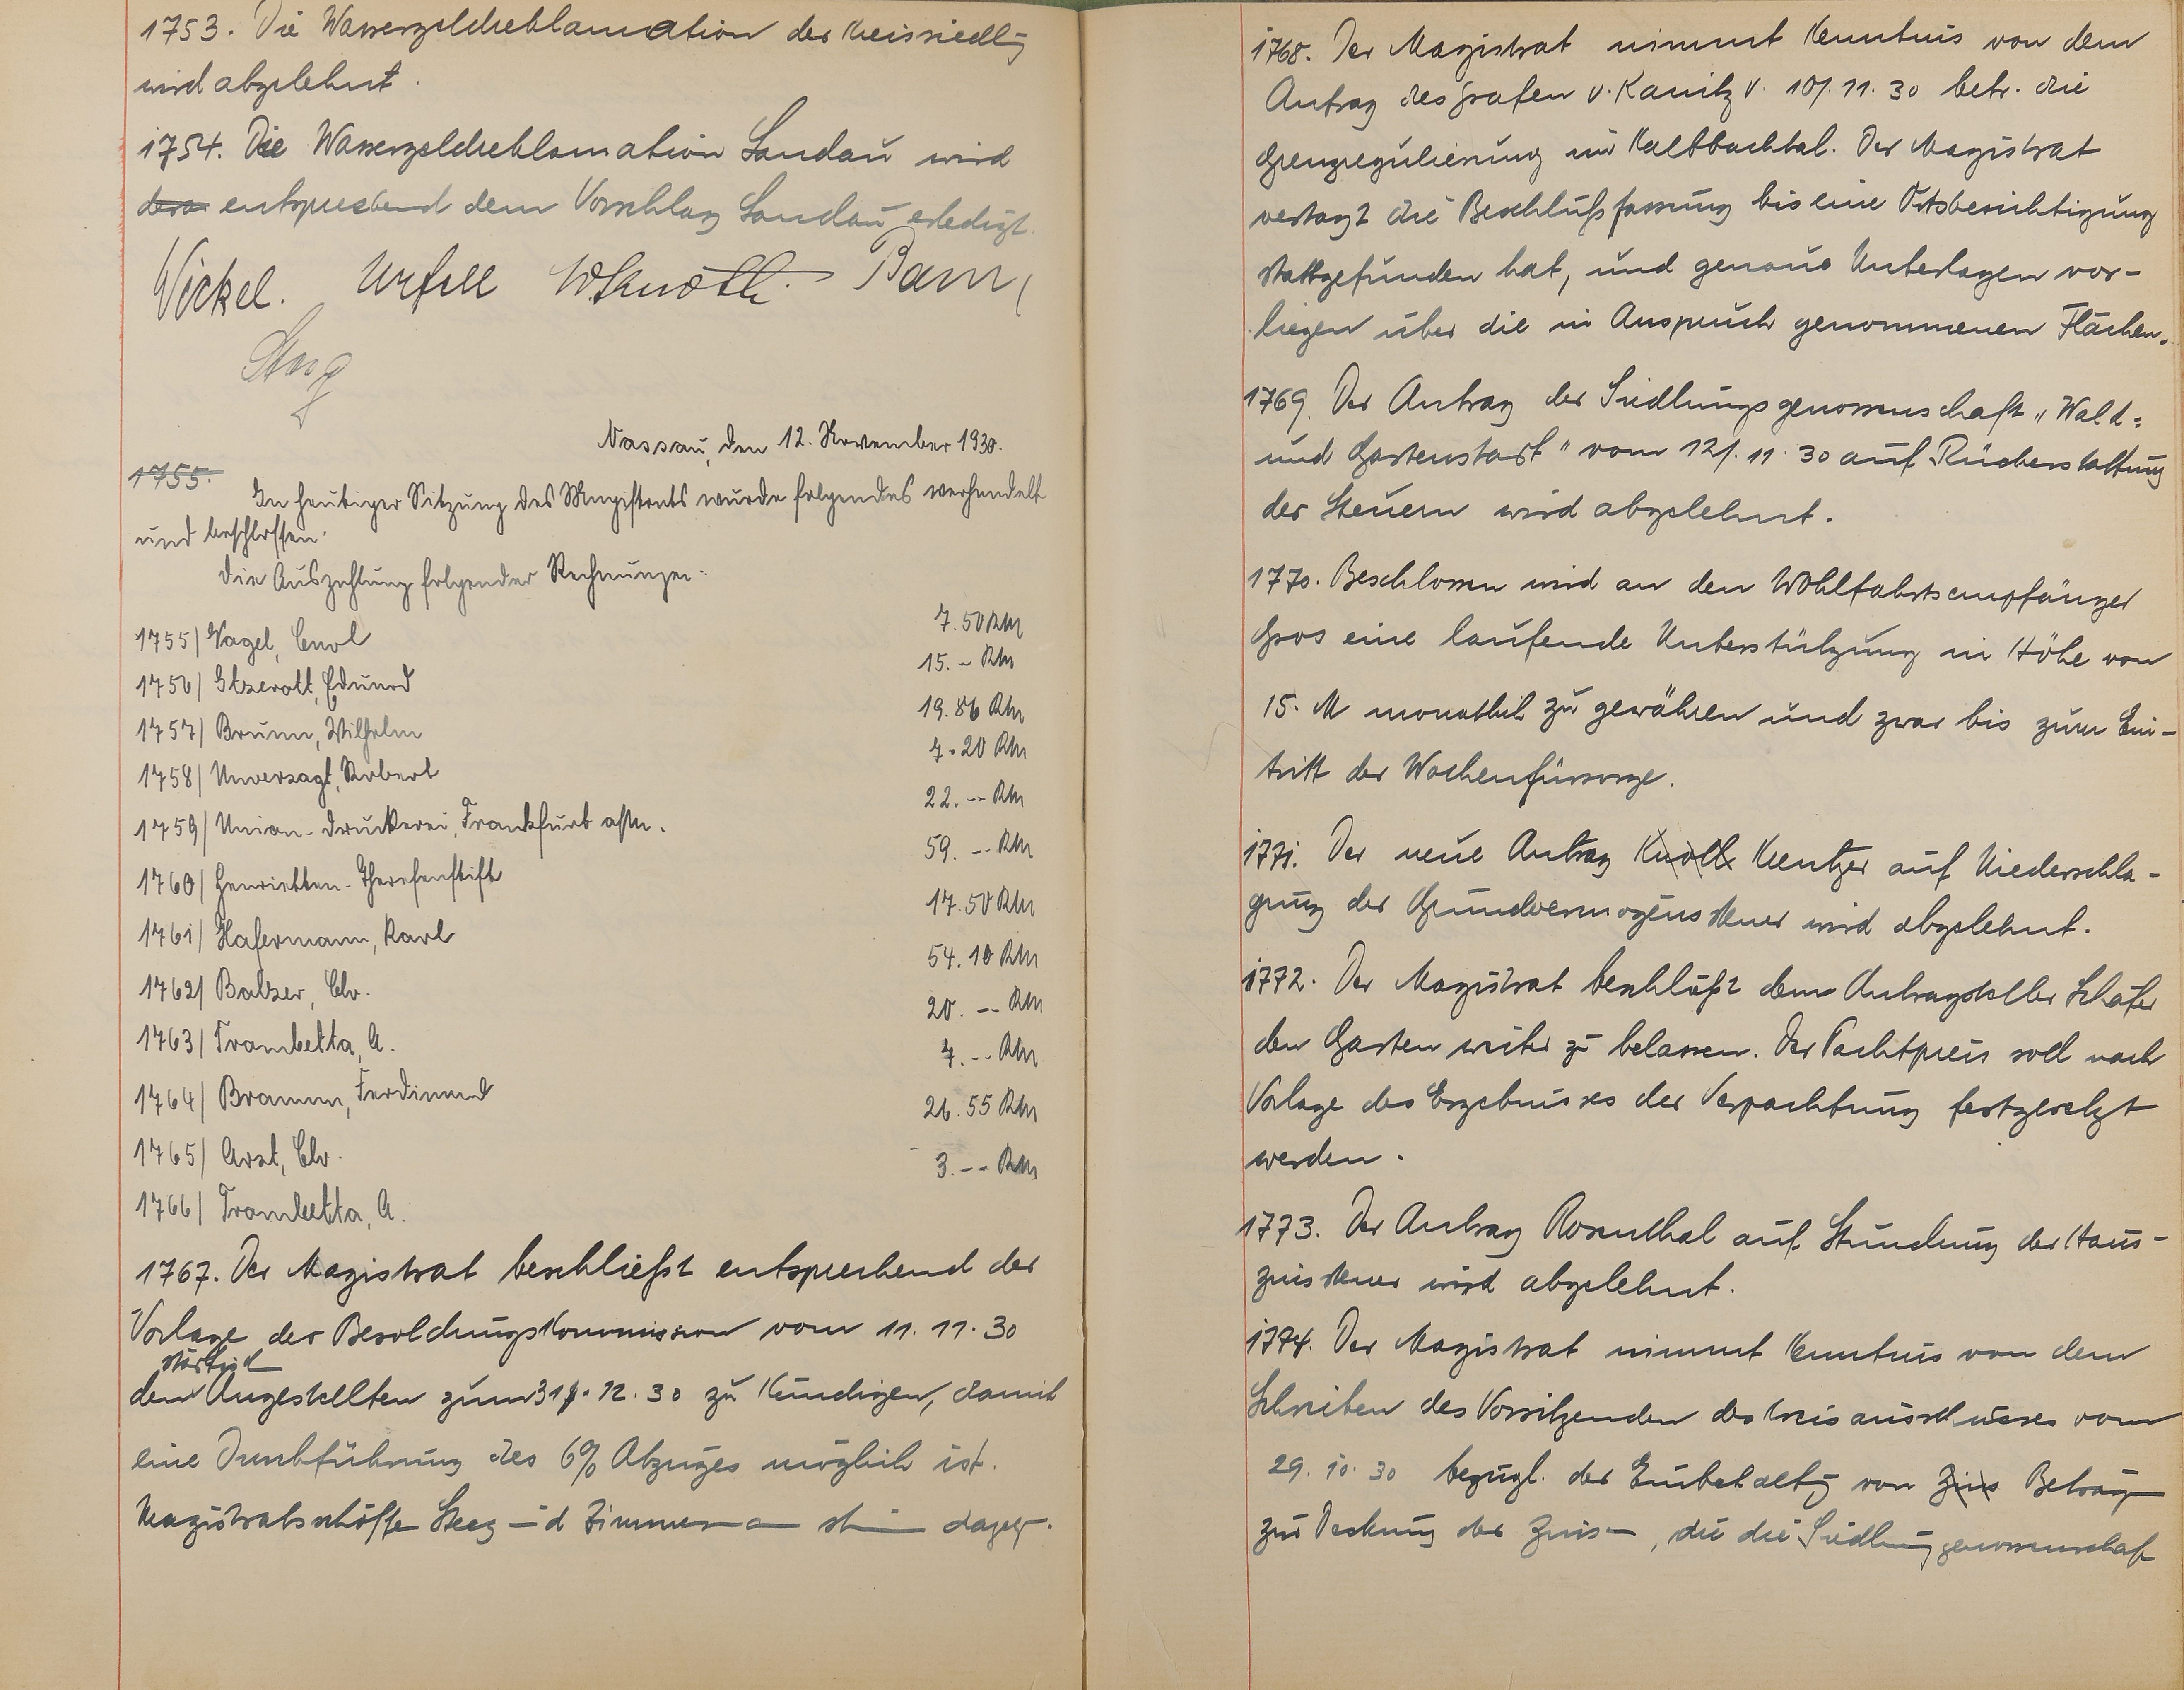 1753. Die Wassergeldreklamation der Kreissiedlg
wird abgelehnt.
1754. Die Wassergeldreklamation Landau wird
entsprechend dem Vorschlag Landau erledigt.
Nassau, den 12. November 1930.
1755.
In heutiger Sitzung des Magistrats wurde folgendes verhandelt
und beschlossen:
die Auszahlung folgender Rechnungen:
1755/ Nagel, Carl 7.50 RM
1756/ Elzerott, Eduard 15.- RM
1757/ Bruun, Wilhelm 19.86 RM
1758/ Unverzagt, Robert 7.20 RM
1759/ Union-Druckerei, Frankfurt a/M. 22.-- RM
1760/ Henrietten-Theresenstift 59.-- RM
1761/ Hafermann, Karl 17.50 RM
1762/ Balzer, Chr. 54.10 RM
1763/ Trombetta, A. 20.-- RM
1764/ Bramm, Ferdinand 7.-- RM
1765/ Arzt, Chr. 26.55 RM
1766/ Trombetta, A. 3.-- RM
1767. Der Magistrat beschließt entsprechend der
Vorlage der Besoldungskommission vom 11.11.30
den Angestellten zum 31.12.30 zu kündigen, damit
eine Durchführung des 6% Abzuges möglich ist.
Magistratsschöffe Steeg und Zimmermann stimmen dagegen.
1768. Der Magistrat nimmt Kenntnis von dem
Antrag des Grafen v. Kanitz v. 10/.11.30 betr. die
Grenzregulierung im Kaltbachtal. Der Magistrat
vertagt die Beschlußfassung bis eine Ortsbesichtigung
stattgefunden hat, und genaue Unterlagen vor-
liegen über die in Anspruch genommenen Flächen.
1769. Der Antrag der Siedlungsgenossenschaft "Wald-
und Gartenstadt" vom 12/.11.30 auf Rückerstattung
der Steuern wird abgelehnt.
1770. Beschlossen wird an den Wohlfahrtsempfänger
Gros eine laufende Unterstützung in Höhe von
15. M monatlich zu gewähren und zwar bis zum Ein-
tritt der Wochenfürsorge.
1771. Der neue Antrag Knoth Kreutzer auf Niederschla-
gung der Grundvermögenssteuer wird abgelehnt.
1772. Der Magistrat beschließt dem Antragsteller Schäfer
den Garten weiter zu belassen. Der Pachtpreis soll nach
Vorlage des Ergebnisses der Verpachtung festgesetzt
werden.
1773. Der Antrag Rosenthal auf Stundung der Haus-
zinssteuer wird abgelehnt.
1774. Der Magistrat nimmt Kenntnis von dem
Schreiben des Vorsitzenden des Kreisausschusses vom
29.10.30 bezügl. der Einbehaltg von Zins Beträgen
zur Deckung der Zinsen, die die Siedlungsgenossenschaft